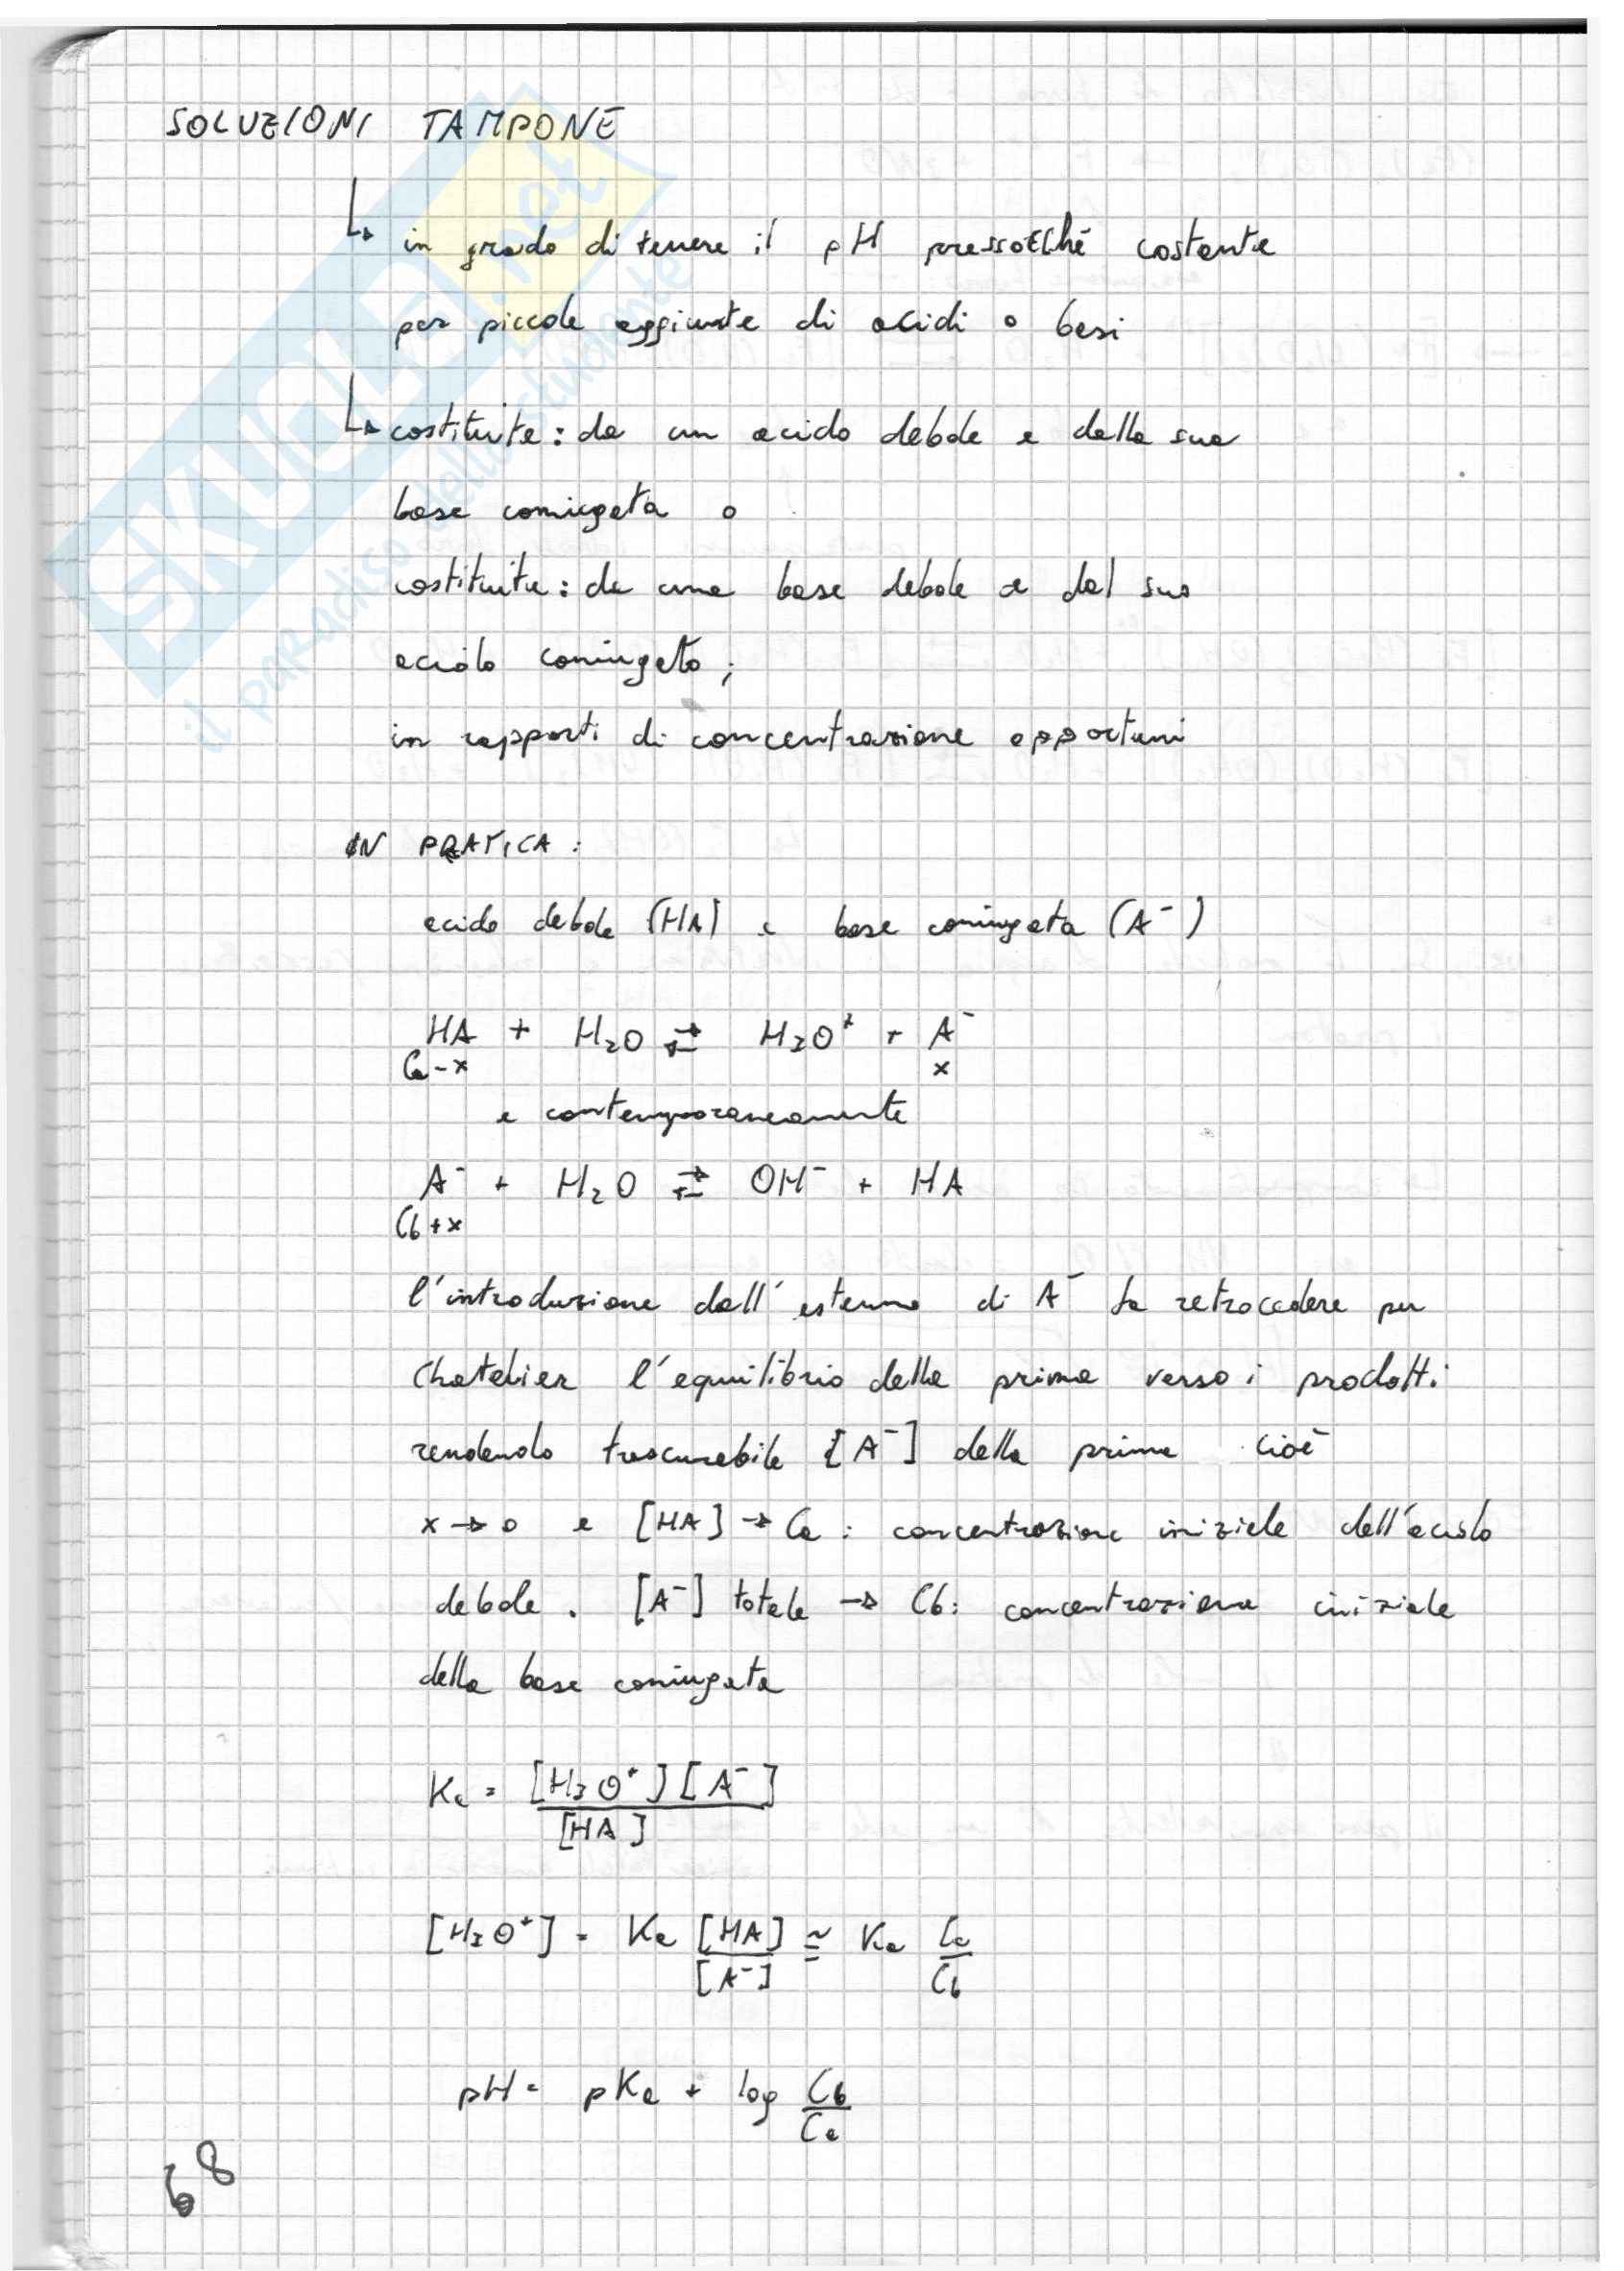 SOLUZIONI TAMPONE
↳ in grado di tenere il pH pressoché costante
per piccole aggiunte di acidi o basi
↳ costituite: da un acido debole e dalla sua
base coniugata o
costituite: da una base debole e dal suo
acido coniugato;
in rapporti di concentrazione opportuni
IN PRATICA:
acido debole (HA) e base coniugata (A⁻)
HA + H₂O ⇄ H₃O⁺ + A⁻
Ca-x x
e contemporaneamente
A⁻ + H₂O ⇄ OH⁻ + HA
Cb+x
l'introduzione dall'esterno di A⁻ fa retrocedere per
Chatelier l'equilibrio della prima verso i prodotti
rendendo trascurabile [A⁻] della prima cioè
x → 0 e [HA] → Ca: concentrazione iniziale dell'acido
debole. [A⁻] totale → Cb: concentrazione iniziale
della base coniugata
Ka = [H₃O⁺][A⁻]
[HA]
[H₃O⁺] = Ka [HA] ≅ Ka Ca
[A⁻] Cb
pH = pKa + log Cb
Ca
68
SKUOLA.net
il paradiso dello studente